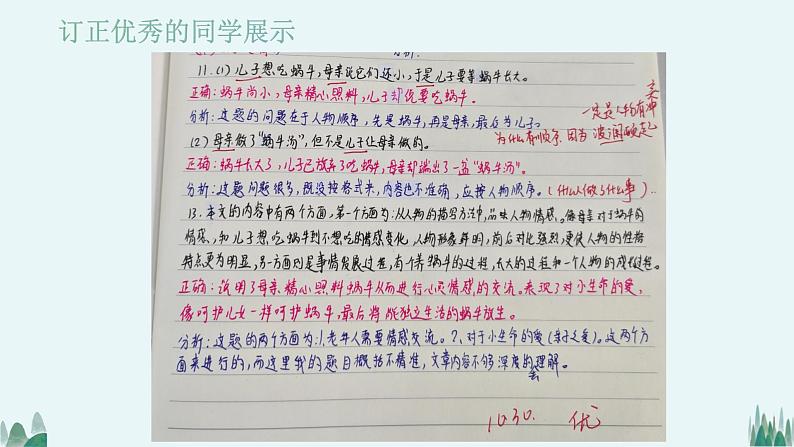 订正优秀的同学展示
分析:
11.(1)儿子想吃蜗牛,母亲说它们还小,于是儿子要等蜗牛长大。
正确:蜗牛尚小,母亲精心照料,儿子却优要吃蜗牛。
分析:这题的问题在于人物顺序,先是蜗牛,再是母亲,最后为儿子。
一定是人物有冲突
为什么有顺序,因为波澜
(2)母亲做了“蜗牛汤”,但不是儿子让母亲做的。
正确:蜗牛大了,儿子已放弃了吃蜗牛,母亲却端出了一盆“蜗牛汤”。
分析:这题问题很多,既没按格式来,内容也不准确,应按人物顺序。(什么人做了什么事)
13.本文的内容中有两个方面,第一个方面为:从人物的描写方法中,品味人物情感。像母亲对于蜗牛的
情感,和儿子想吃蜗牛到不想吃的情感变化,人物形象鲜明,前后对比强烈,更使人物的性格
特点更为明显,另一方面则是事情发展过程,有个养蜗牛的过程,长大的过程和一个人物的成长过程。
正确:说明了母亲精心照料蜗牛从而进行心灵情感的交流。表现了对小生命的爱,
像呵护儿女一样呵护蜗牛,最后将能独立生活的蜗牛放生。
分析:这题的两个方面为:1.老年人需要情感交流。2.对于小生命的爱(亲子之爱)。这两个方
面来进行的,而这里我的题目概括不精准,文章内容不够深度的理解。
10.30. 优